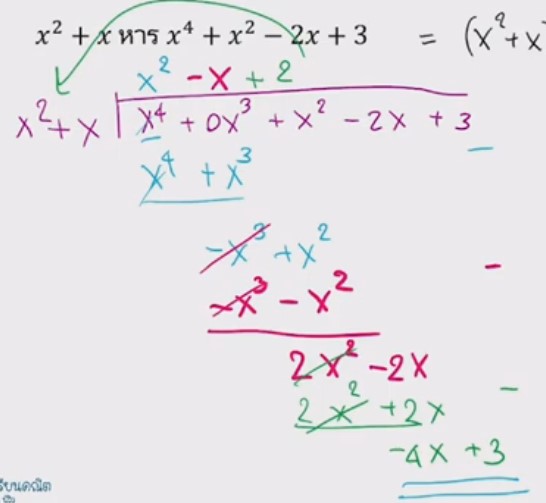 x² + x หาร x⁴ + x² − 2x + 3 = (x² + x
x² - x + 2
x² + x x⁴ + 0x³ + x² - 2x + 3
x⁴ + x³ -
-x³ + x²
-x³ - x² -
2x² - 2x
2x² + 2x -
-4x + 3
เรียนคณิต